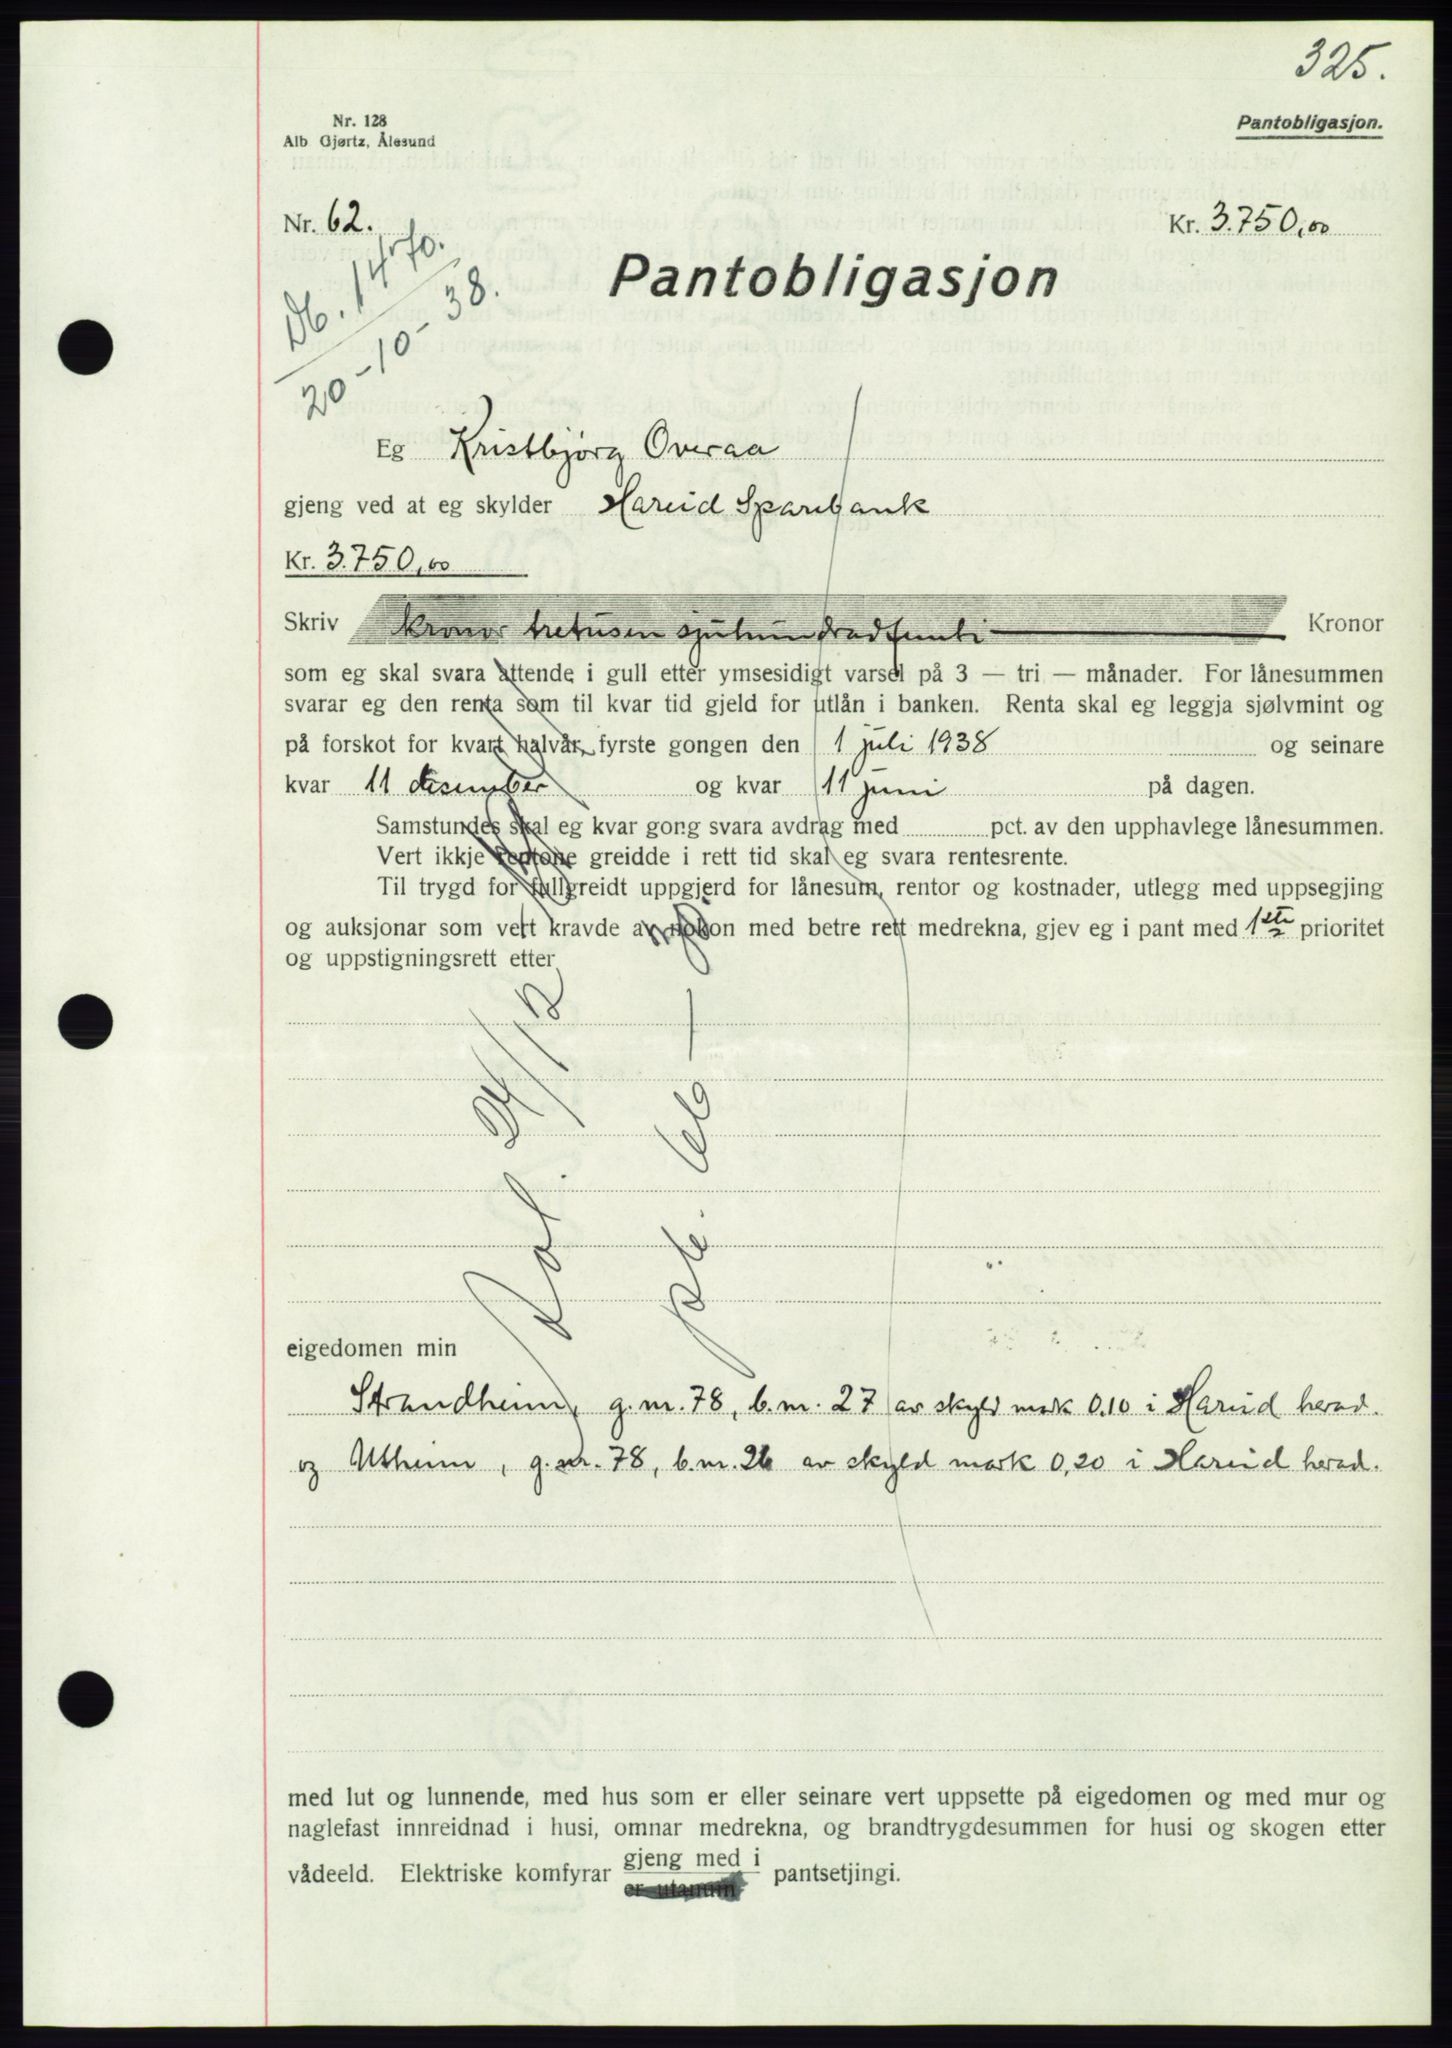 325.
Nr. 128
Alb Gjørtz, Ålesund
Pantobligasjon.
Nr. 62.
Kr. 3.750,00
Db. 1470.
20-10-38.
Pantobligasjon
Eg Kristbjørg Overaa
gjeng ved at eg skylder Hareid Sparebank
Kr. 3.750,00
Skriv kronor tretusen sjuhundradfemti Kronor
som eg skal svara attende i gull etter ymsesidigt varsel på 3 — tri — månader. For lånesummen
svarar eg den renta som til kvar tid gjeld for utlån i banken. Renta skal eg leggja sjølvmint og
på forskot for kvart halvår, fyrste gongen den 1 juli 1938 og seinare
kvar 11 desember og kvar 11 juni på dagen.
Samstundes skal eg kvar gong svara avdrag med pct. av den upphavlege lånesummen.
Vert ikkje rentone greidde i rett tid skal eg svara rentesrente.
Til trygd for fullgreidt uppgjerd for lånesum, rentor og kostnader, utlegg med uppsegjing
og auksjonar som vert kravde av nokon med betre rett medrekna, gjev eg i pant med 1ste prioritet
og uppstigningsrett etter
eigedomen min
Strandheim, g.nr. 78, b.nr. 27 av skyld mark 0.10 i Hareid herad.
og Utheim, g.nr. 78, b.nr. 26 av skyld mark 0,20 i Hareid herad.
med lut og lunnende, med hus som er eller seinare vert uppsette på eigedomen og med mur og
naglefast innreidnad i husi, omnar medrekna, og brandtrygdesummen for husi og skogen etter
vådeeld. Elektriske komfyrar gjeng med i
er utanum pantsetjingi.